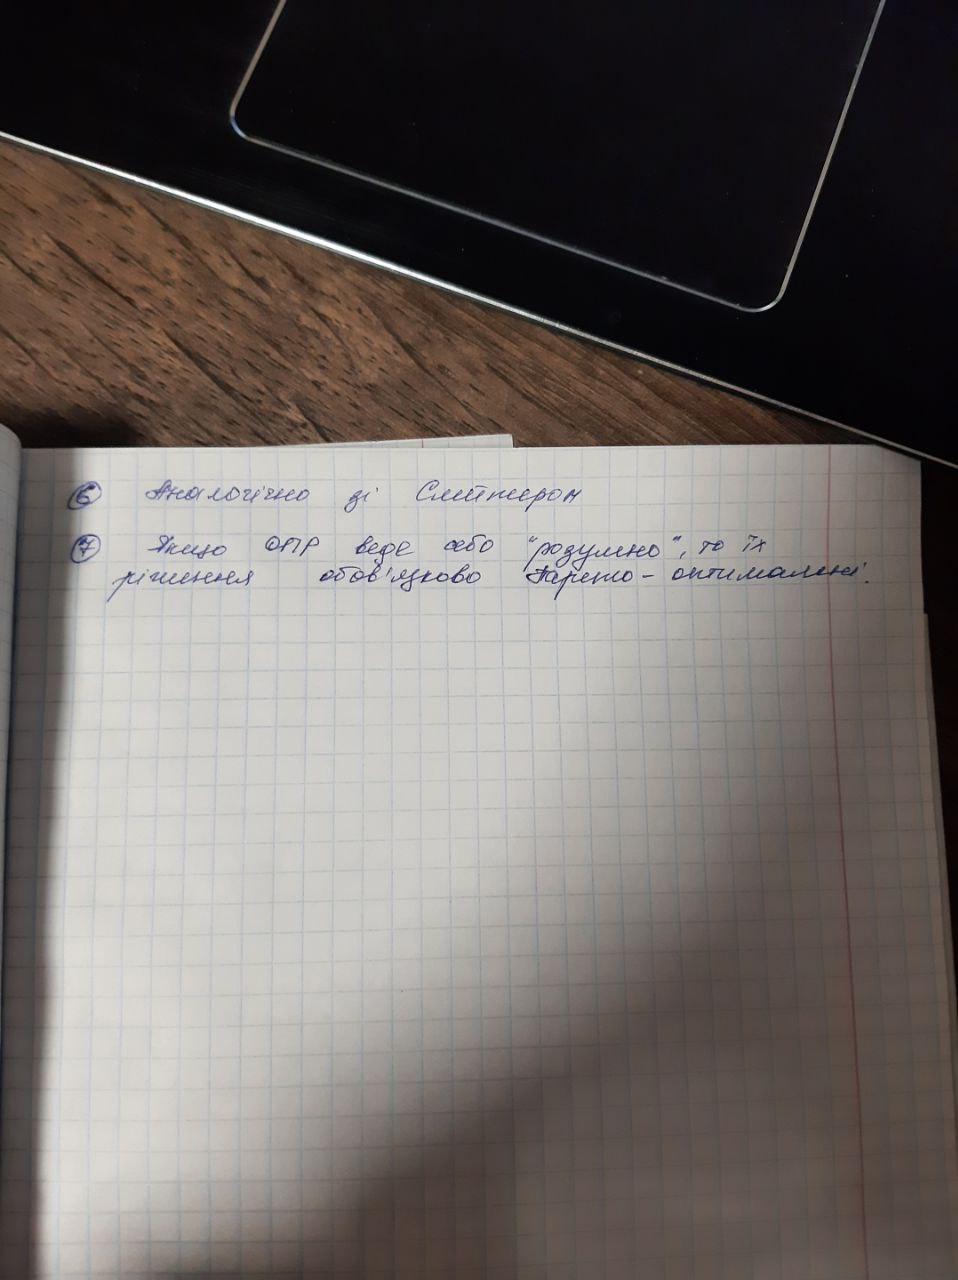 ⑥ Аналогічно зі Слейтером
⑦ Якщо ОПР веде себе "розумно", то їх
рішення обов'язково Парето - оптимальні.